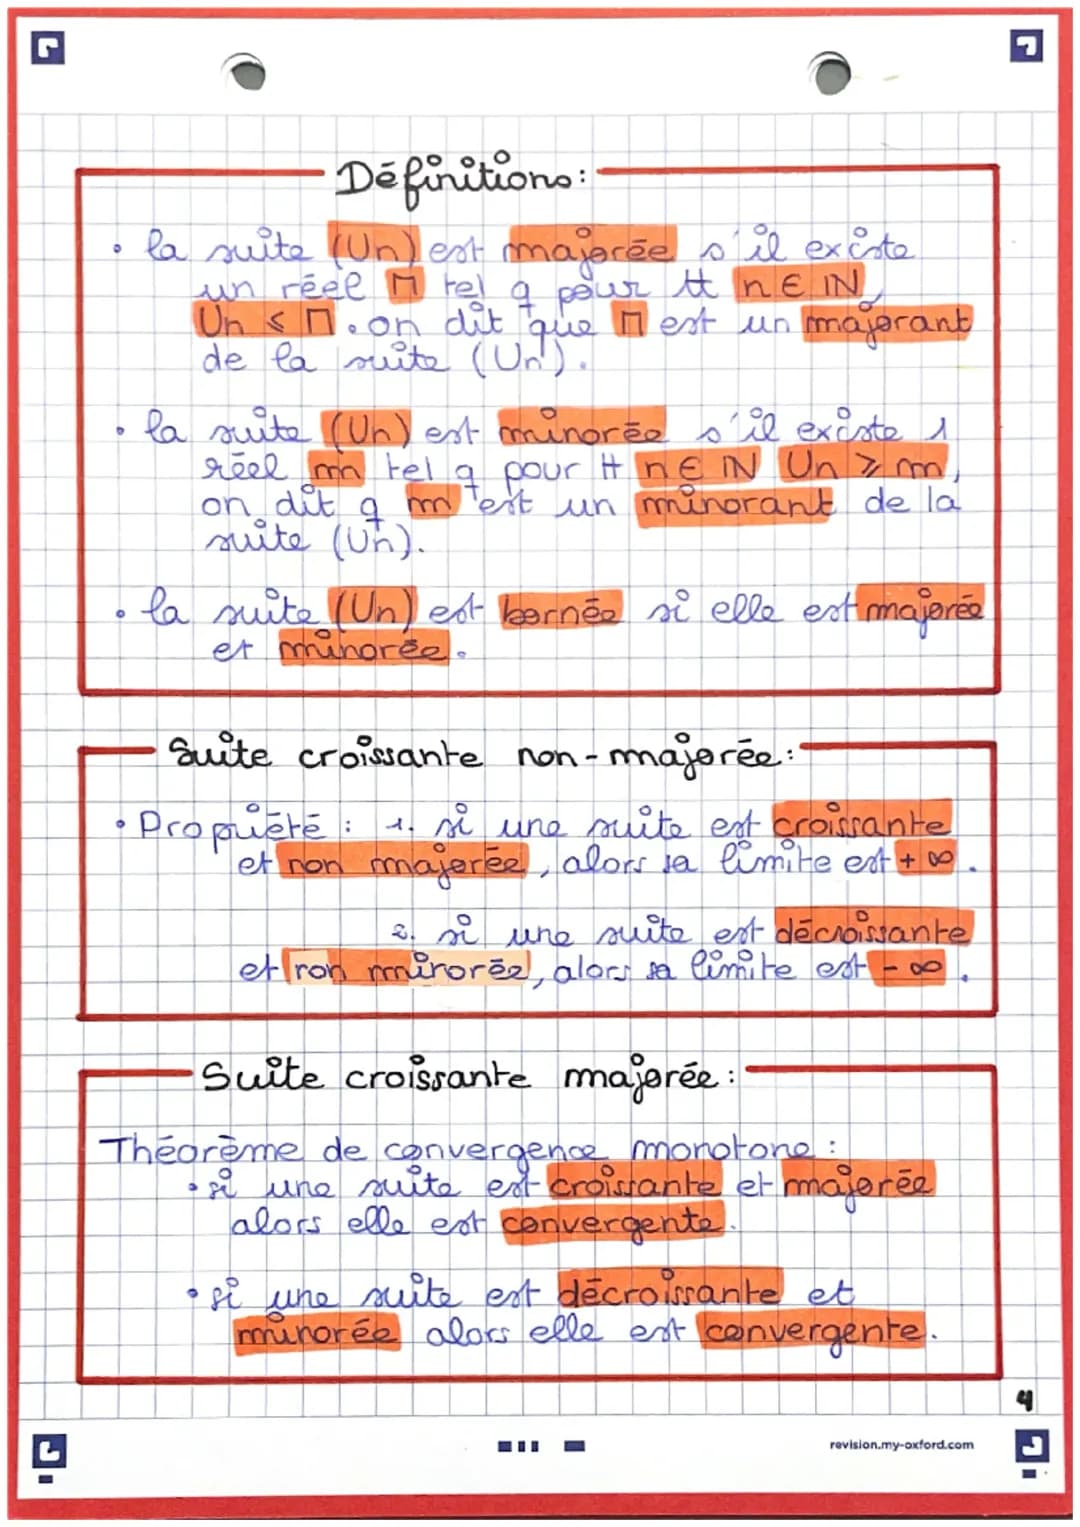 Définitions:
• la suite (Un) est majorée s'il existe
un réel M tel q pour tt n ∈ IN,
Un ≤ M. on dit que M est un majorant
de la suite (Un).
• la suite (Un) est minorée s'il existe 1
réel m tel q pour tt n ∈ IN Un ≥ m,
on dit q m est un minorant de la
suite (Un).
• la suite (Un) est bornée si elle est majorée
et minorée.
Suite croissante non-majorée:
• Propriété : 1. si une suite est croissante
et non majorée, alors sa limite est +∞.
2. si une suite est décroissante
et non minorée, alors sa limite est -∞.
Suite croissante majorée:
Théorème de convergence monotone :
• si une suite est croissante et majorée
alors elle est convergente.
• si une suite est décroissante et
minorée alors elle est convergente.
4
revision.my-oxford.com